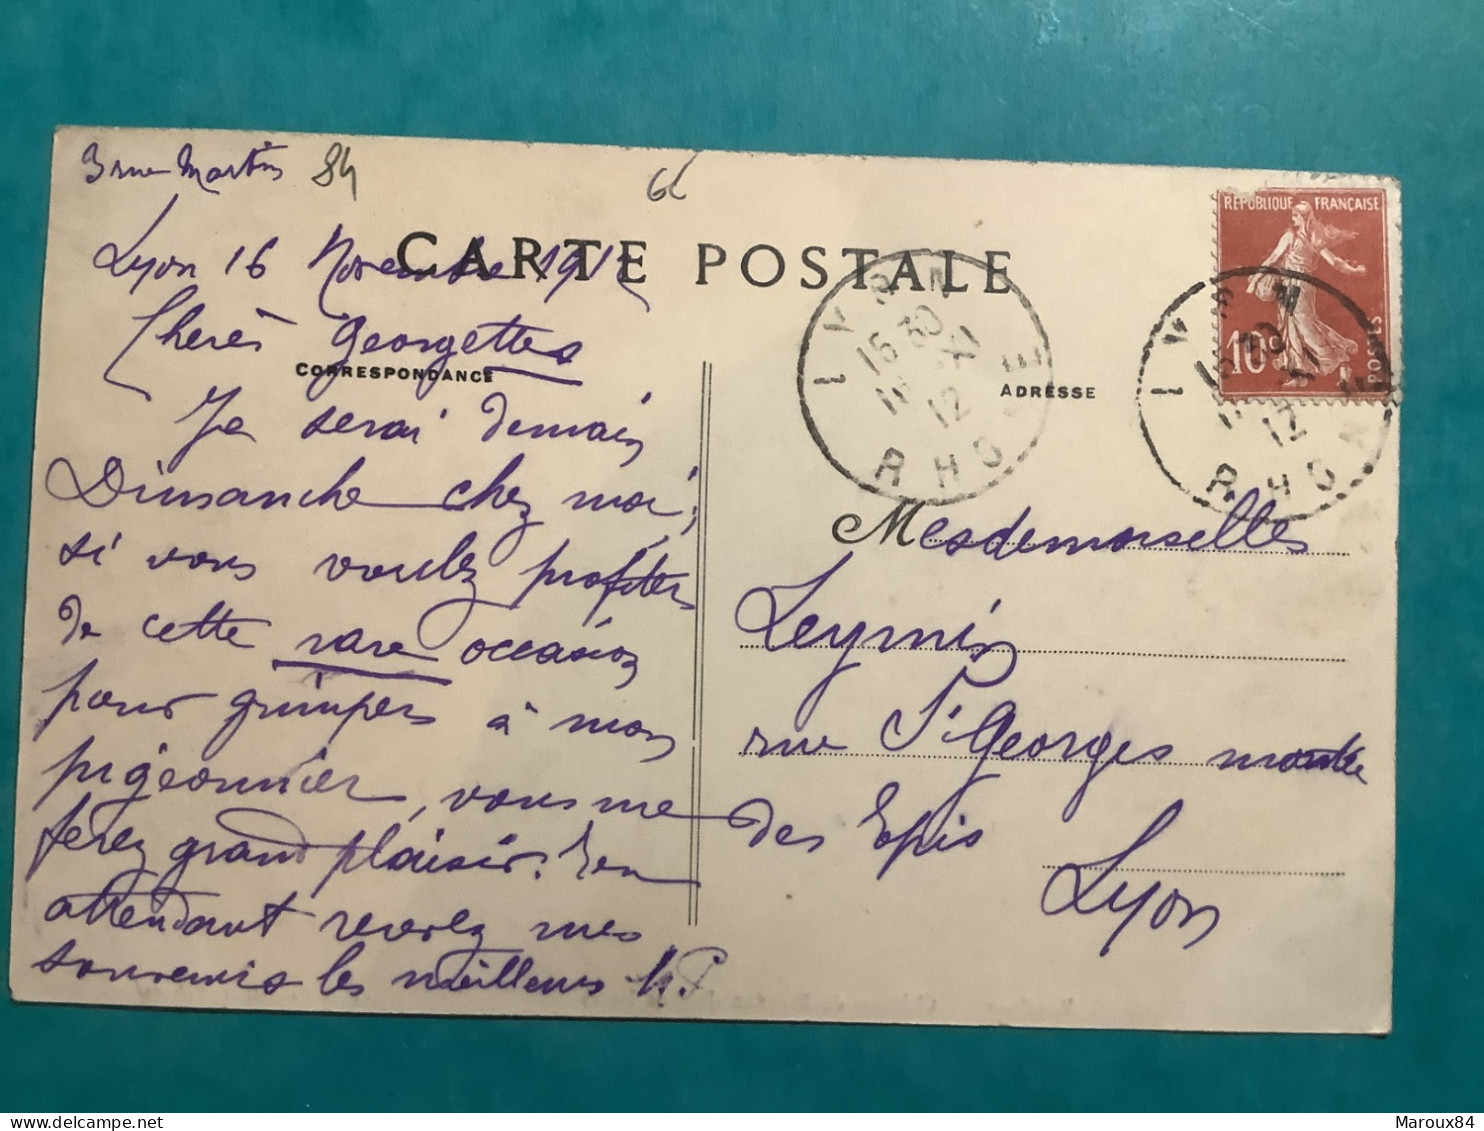 3 rue Martin 84
6c
Lyon 16 Novembre 1912
CARTE POSTALE
Cherès Georgettes
CORRESPONDANCE
Je serai demain
Dimanche chez moi;
si vous voulez profiter
de cette rare occasion
pour grimper à mon
pigeonnier, vous me
ferez grand plaisir. En
attendant recevez mes
souvenirs les meilleurs
ADRESSE
Mesdemoiselles
Leymin
rue St Georges montée
des Epis
Lyon
RÉPUBLIQUE FRANÇAISE
10c
POSTES
LYON
15 30
12
RHONE
LYON
15 30
12
RHONE
Maroux84